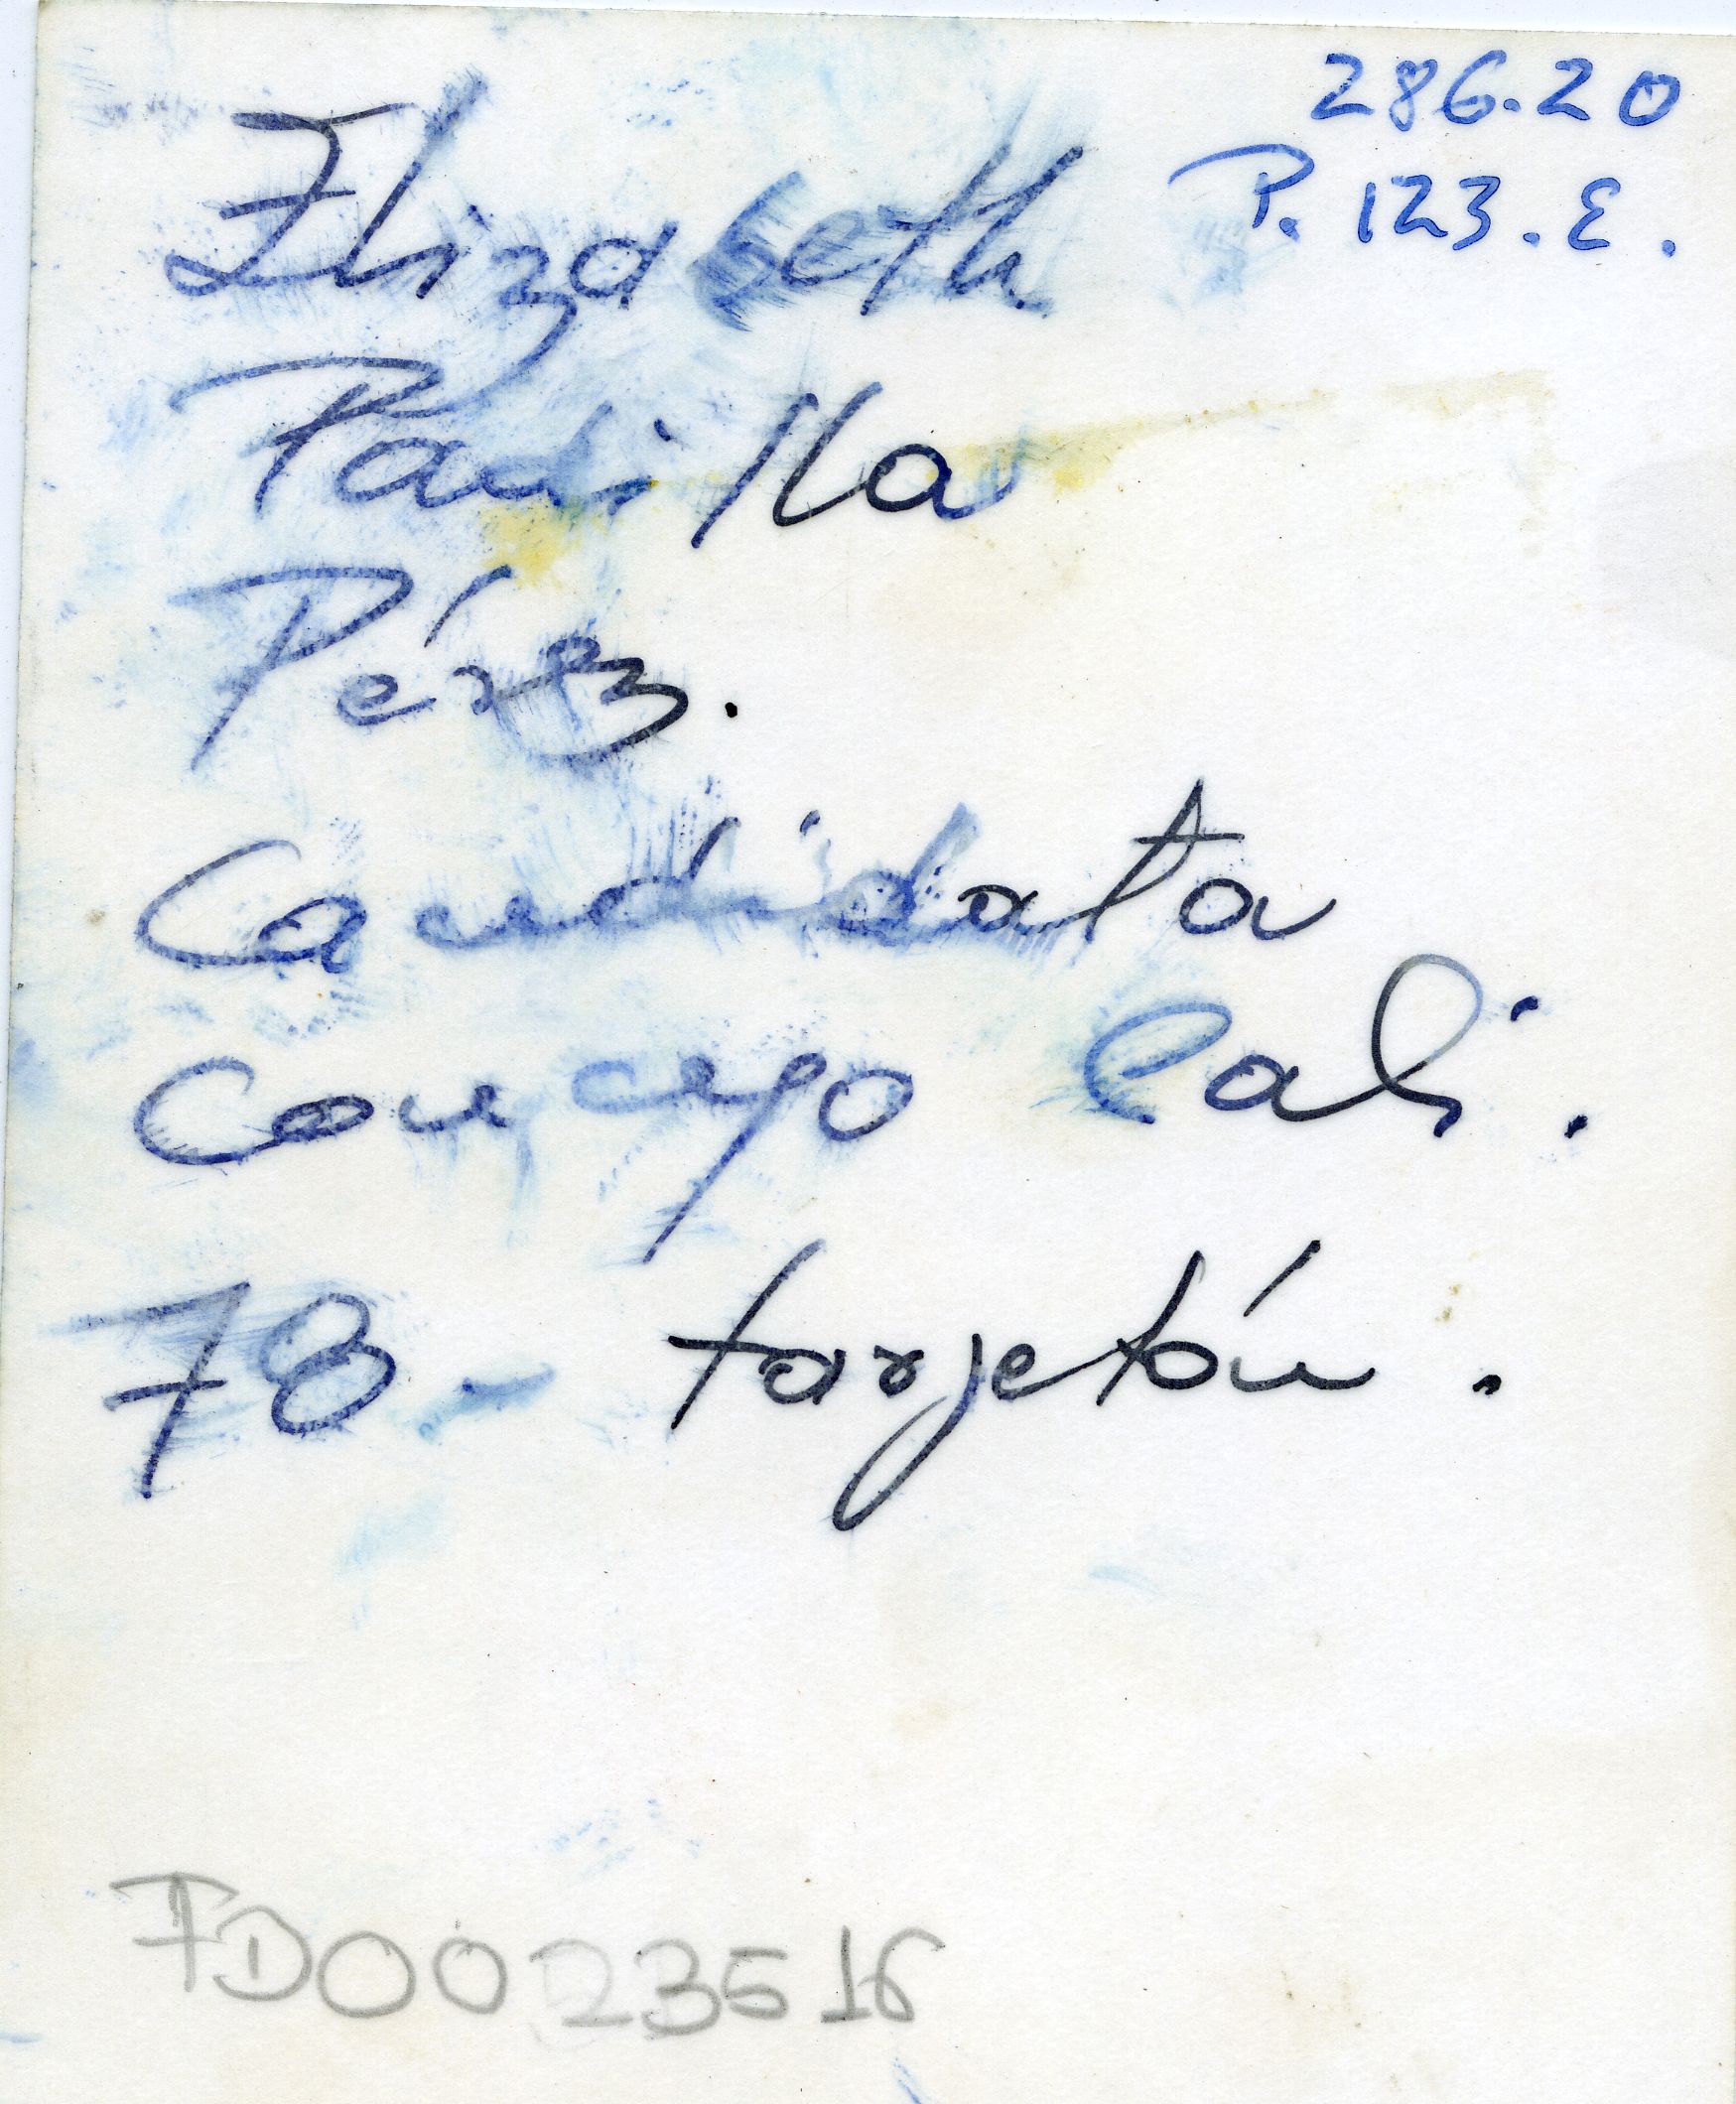 286.20
P. 123. E.
Elizabeth
Padilla
Pérez.
Candidata
Concejo Cali.
78 - tarjetón.
FD0023516